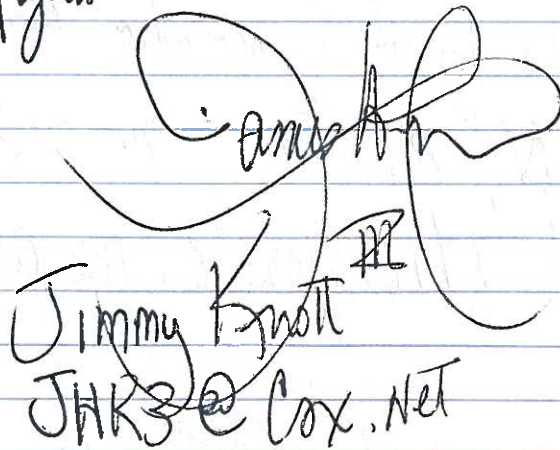 James H
III
Jimmy Knott
JHK3@Cox.Net